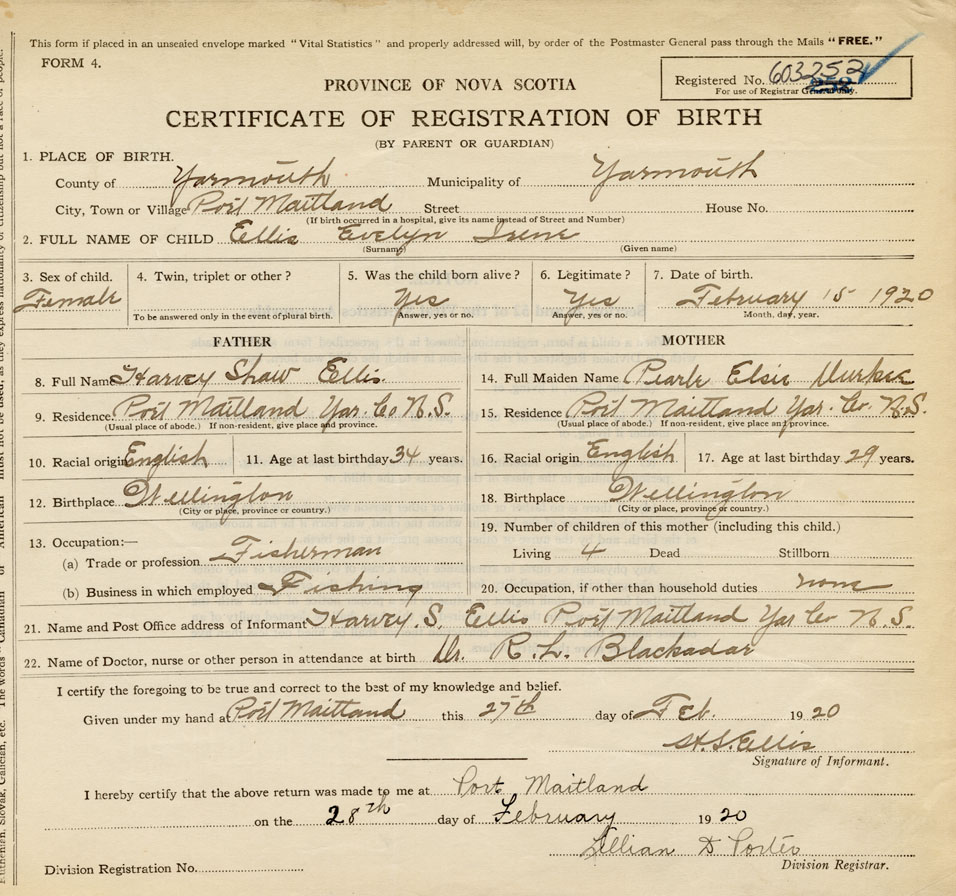 This form if placed in an unsealed envelope marked "Vital Statistics" and properly addressed will, by order of the Postmaster General pass through the Mails "FREE."
FORM 4.
Registered No. 603252
For use of Registrar General only.
PROVINCE OF NOVA SCOTIA
CERTIFICATE OF REGISTRATION OF BIRTH
(BY PARENT OR GUARDIAN)
1. PLACE OF BIRTH.
County of Yarmouth Municipality of Yarmouth
City, Town or Village Port Maitland Street House No.
(If birth occurred in a hospital, give its name instead of Street and Number)
2. FULL NAME OF CHILD Ellis Evelyn Irene
(Surname) (Given name)
3. Sex of child. 4. Twin, triplet or other? 5. Was the child born alive? 6. Legitimate? 7. Date of birth.
Female Yes Yes February 15 1920
To be answered only in the event of plural birth. Answer, yes or no. Answer, yes or no. Month, day, year.
FATHER MOTHER
8. Full Name Harvey Shaw Ellis. 14. Full Maiden Name Pearle Elsie
9. Residence Port Maitland Yar. Co N.S. 15. Residence Port Maitland Yar. Co. N.S.
(Usual place of abode.) If non-resident, give place and province. (Usual place of abode.) If non-resident, give place and province.
10. Racial origin English 11. Age at last birthday 34 years. 16. Racial origin English 17. Age at last birthday 29 years.
12. Birthplace Wellington 18. Birthplace Wellington
(City or place, province or country.) (City or place, province or country.)
19. Number of children of this mother (including this child.)
13. Occupation:—
(a) Trade or profession Fisherman Living 4 Dead Stillborn
(b) Business in which employed Fishing 20. Occupation, if other than household duties none
21. Name and Post Office address of Informant Harvey. S. Ellis Port Maitland Yar Co N.S.
22. Name of Doctor, nurse or other person in attendance at birth Dr. R. L. Blackadar
I certify the foregoing to be true and correct to the best of my knowledge and belief.
Given under my hand at Port Maitland this 27th day of Feb. 1920
H.S. Ellis
Signature of Informant.
I hereby certify that the above return was made to me at Port Maitland
on the 28th day of February 1920
Lillian D Porter
Division Registration No. Division Registrar.